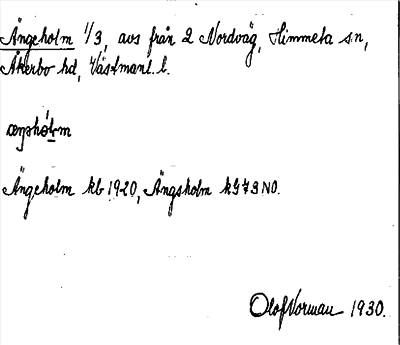 Ängeholm 1/3, avs från 2 Nordväg, Himmeta sn,
Åkerbo hd, Västmanl. l.
Ängeholm kb 1920, Ängsholm kG73NO.
Olof Norman 1930.